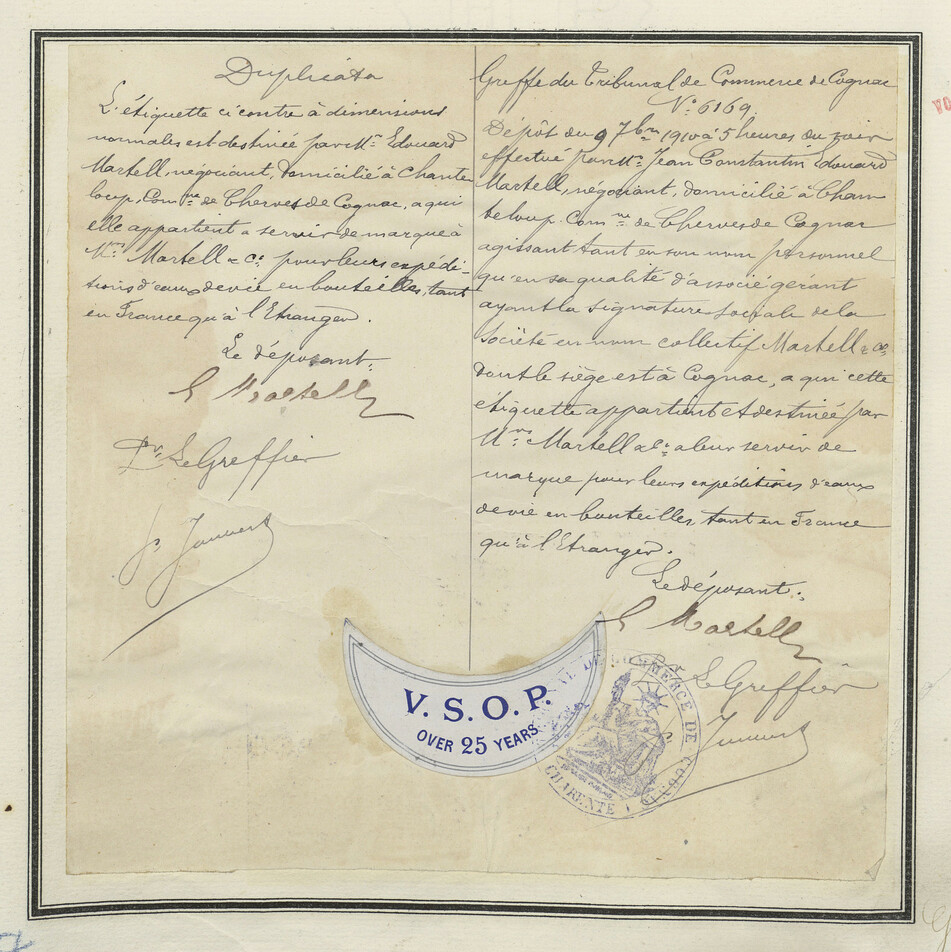 Duplicata
L'étiquette ci contre à dimensions
normales est destinée par Mr. Edouard
Martell, négociant, domicilié à Chante
loup, Comne de Cherves de Cognac, a qui
elle appartient a servir de marque à
Mrs Martell & Co. pour leurs expédi-
tions d'eaux de vie en bouteilles, tant
en France qu'à l'Etranger.
Le déposant,
E Martell
Pr. Le Greffier
Greffe du Tribunal de Commerce de Cognac
No. 6169.
Dépôt du 9 7bre 1910 à 5 heures du soir
effectué par Mr. Jean Constantin Edouard
Martell, négociant, domicilié à Chan
teloup. Comne de Cherves de Cognac
agissant tant en son nom personnel
qu'en sa qualité d'associé gérant
ayant la signature sociale de la
Société en nom collectif Martell & Co.
dont le siège est à Cognac, a qui cette
etiquette appartient et destinée par
Mrs Martell & Co. a leur servir de
marque pour leurs expéditions d'eaux
de vie en bouteilles, tant en France
qu'à l'Etranger.
Le déposant.
E Martell
Pr Le Greffier
V.S.O.P.
OVER 25 YEARS
TRIBUNAL DE COMMERCE DE COGNAC
CHARENTE